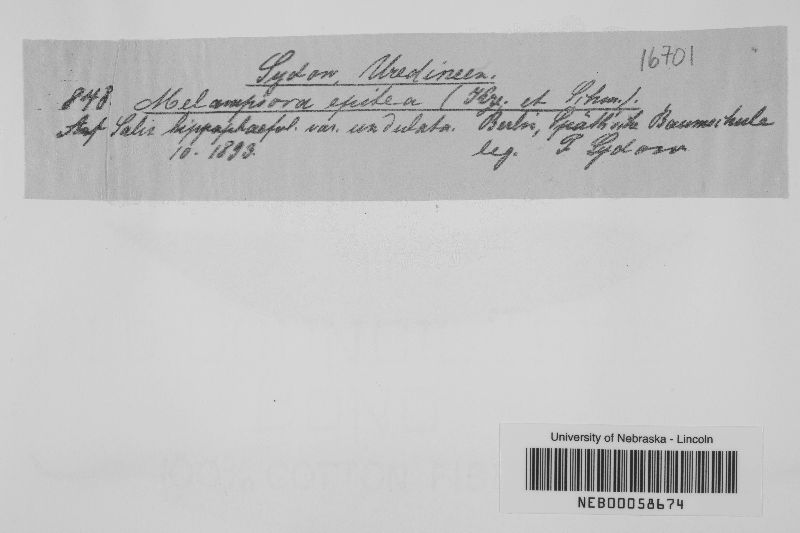 16701
Sydow, Uredineen.
848. Melampsora epitea (Kze. et Schm.).
Auf Salix hippophaefol. var. undulata. Berlin, Späth'sche Baumschule
10. 1893. leg. P. Sydow
University of Nebraska - Lincoln
NEB00058674